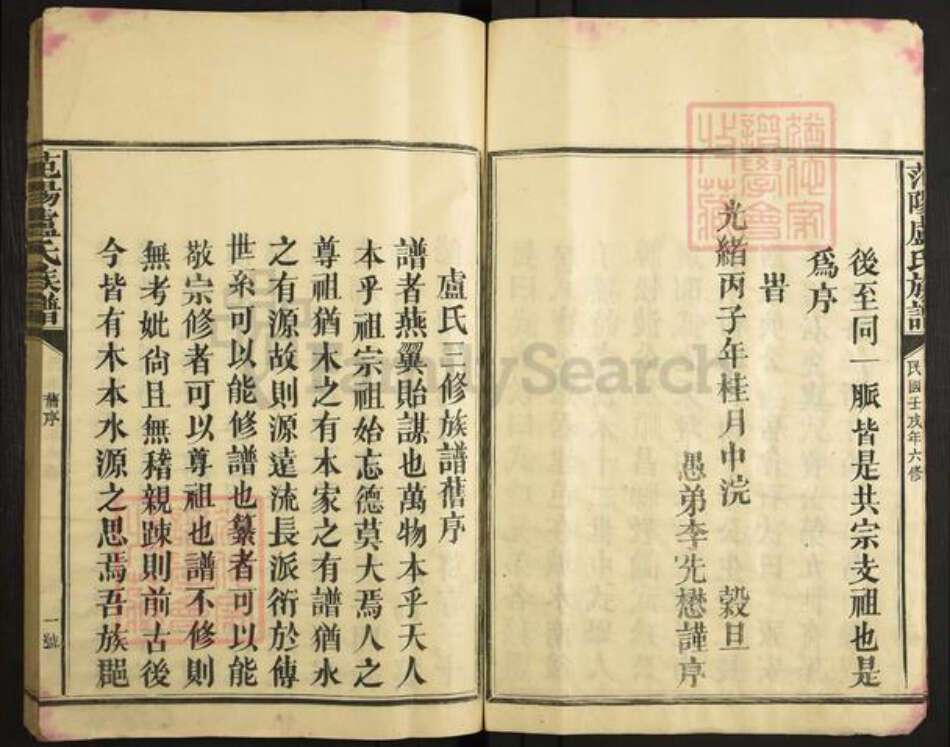 范陽盧氏族譜
民國壬戌年六修
後至同一脈皆是共宗支祖也是
為序
旹
光緒丙子年桂月中浣 穀旦
愚弟李先懋謹序
盧氏三修族譜舊序
譜者燕翼貽謀也萬物本乎天人
本乎祖宗祖始忘德莫大焉人之
尊祖猶木之有本家之有譜猶水
之有源故則源遠流長派衍於傳
世系可以能修譜也纂者可以能
敬宗修者可以尊祖也譜不修則
無考妣尚且無稽親踈則前古後
今皆有木本水源之思焉吾族
范陽盧氏族譜
舊序
一號
FamilySearch